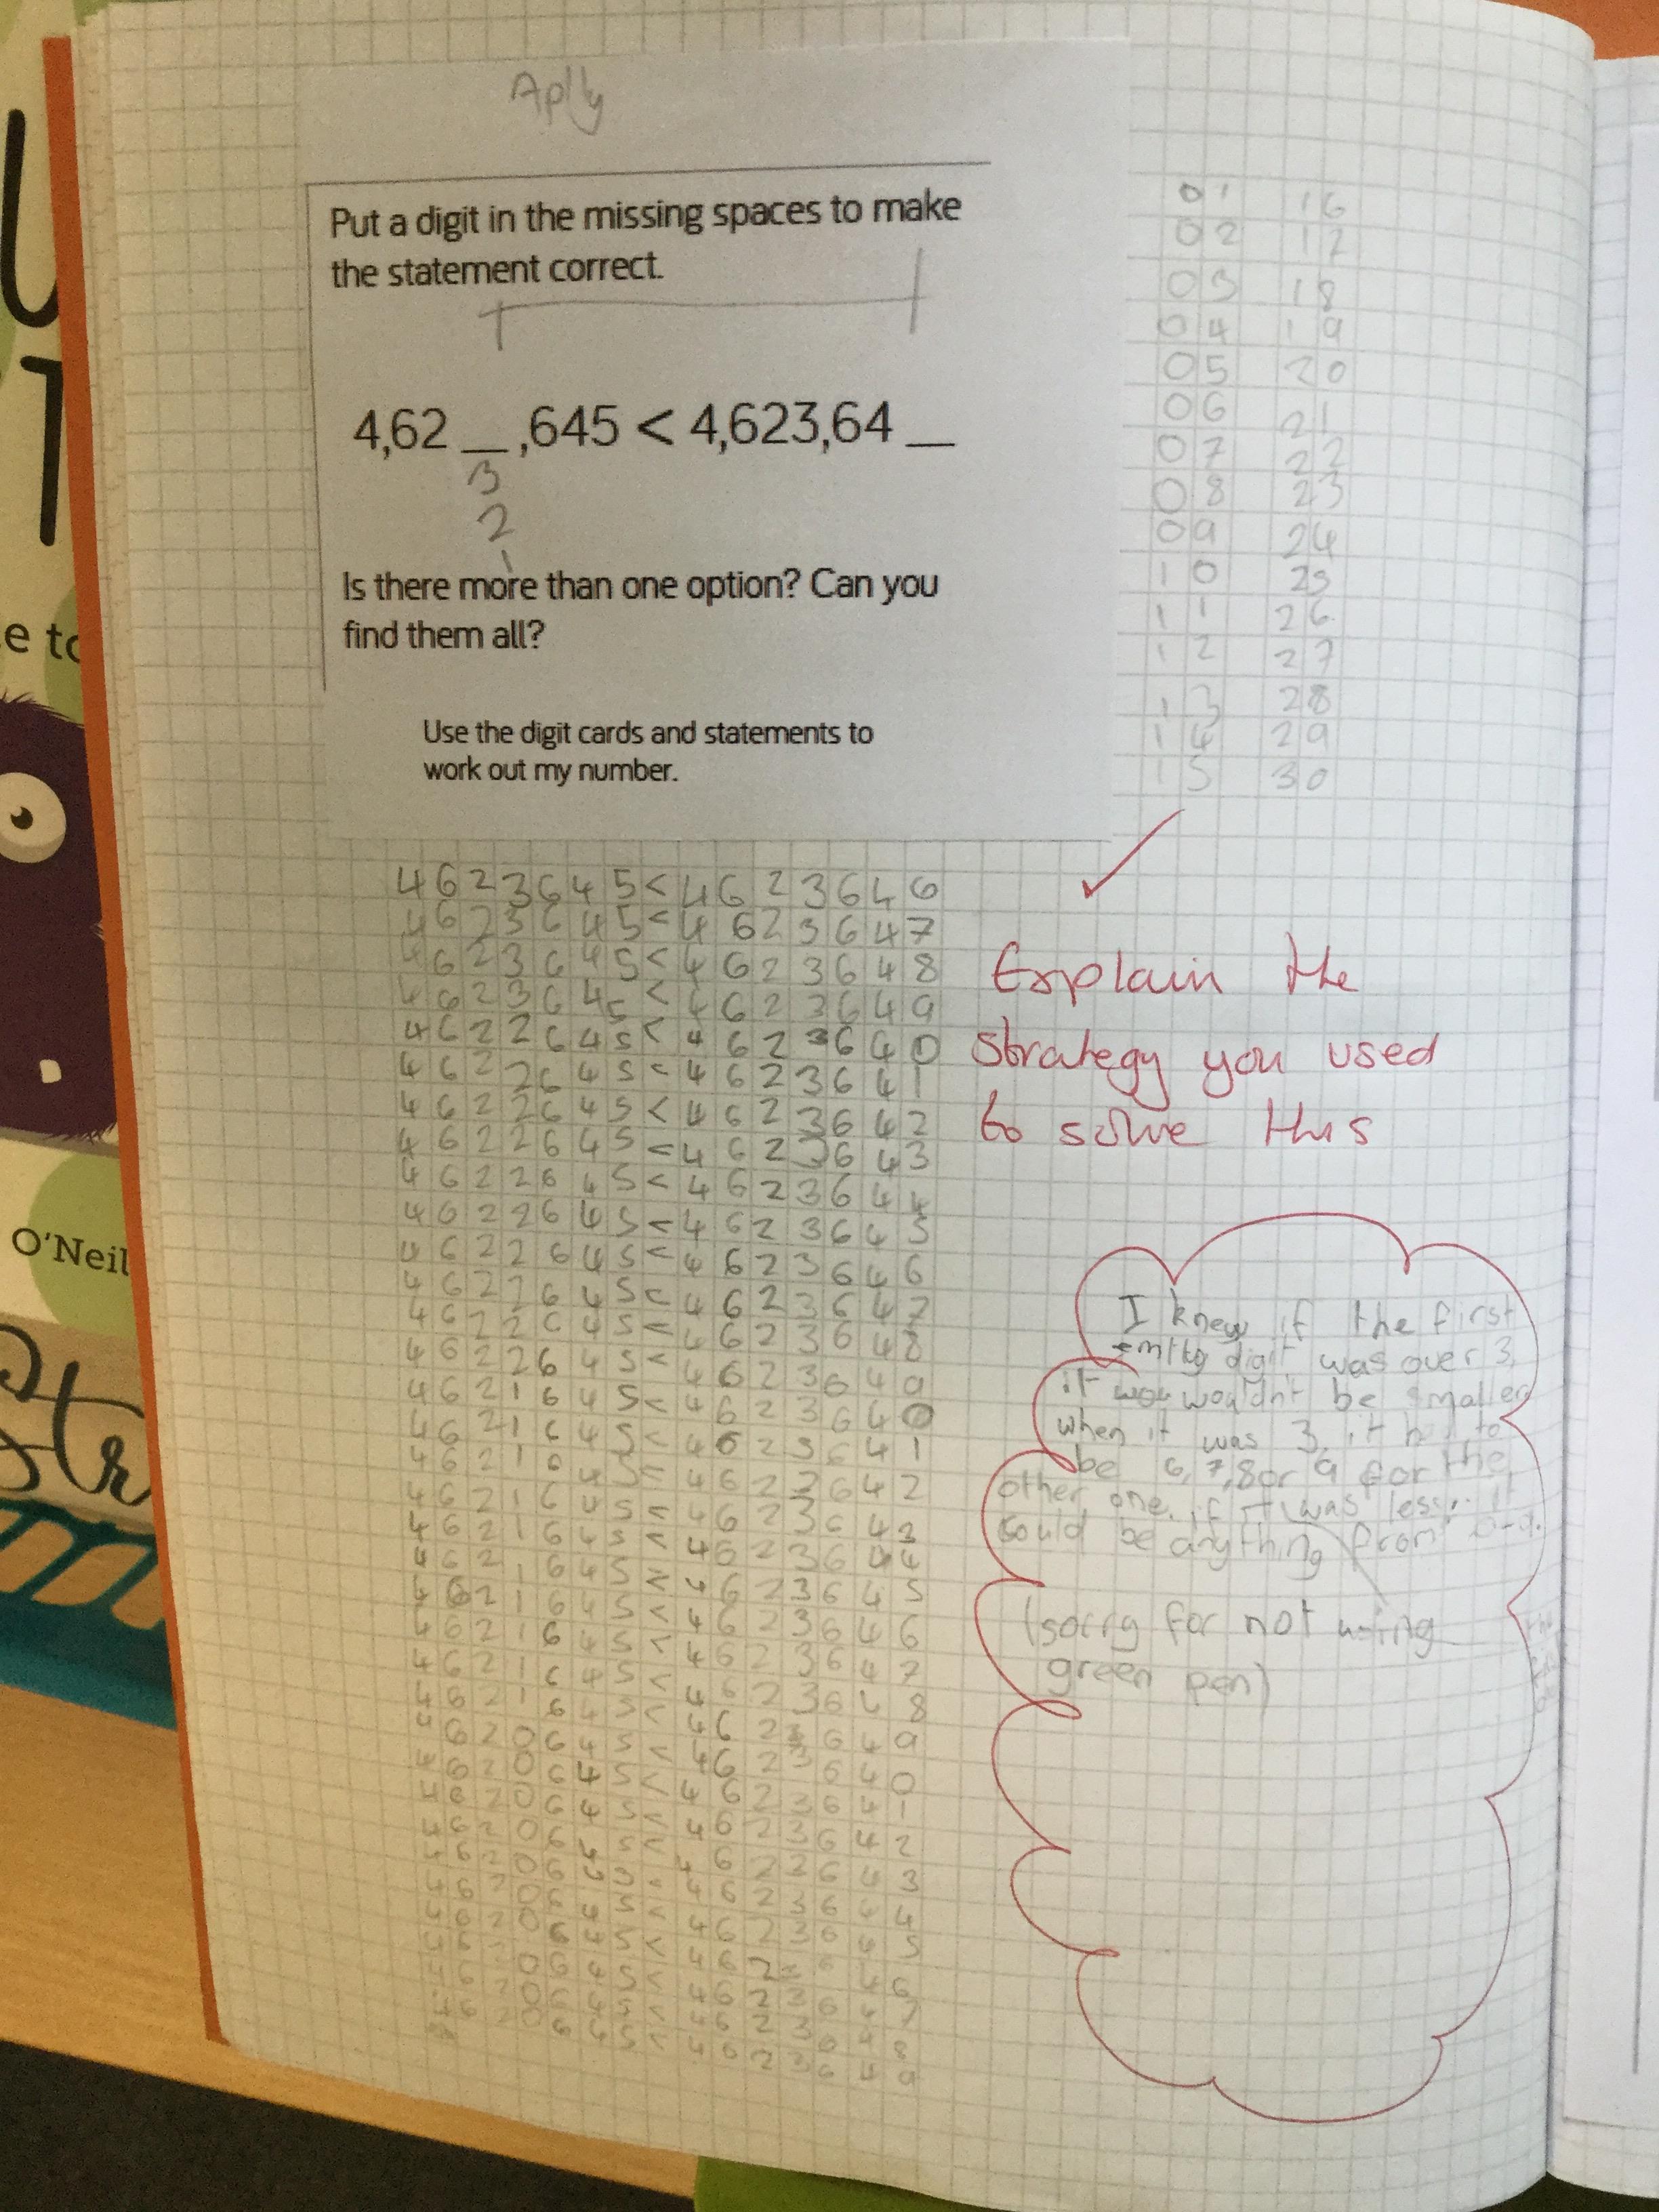 Aplly
Put a digit in the missing spaces to make
the statement correct.
4,62 __ ,645 < 4,623,64 __
3
2
1
Is there more than one option? Can you
find them all?
Use the digit cards and statements to
work out my number.
01 16
02 17
03 18
04 19
05 20
06 21
07 22
08 23
09 24
10 25
11 26
12 27
13 28
14 29
15 30
4623645<4623646
4623645<4623647
4623645<4623648
4623645<4623649
4622645<4623640
4622645<4623641
4622645<4623642
4622645<4623643
4622645<4623644
4622645<4623645
4622645<4623646
4622645<4623647
4622645<4623648
4622645<4623649
4621645<4623640
4621645<4623641
4621645<4623642
4621645<4623643
4621645<4623644
4621645<4623645
4621645<4623646
4621645<4623647
4621645<4623648
4621645<4623649
4620645<4623640
4620645<4623641
4620645<4623642
4620645<4623643
4620645<4623644
4620645<4623645
4620645<4623646
4620645<4623647
4620645<4623648
4620645<4623649
Explain the
strategy you used
to solve this
I knew if the first
digit was over 3,
it wouldn't be smaller
when it was 3, it had to
be 6,7,8 or 9 for the
other one. if it was less, it
could be anything from 0-9.
(sorry for not using
green pen)
e to
O'Neil